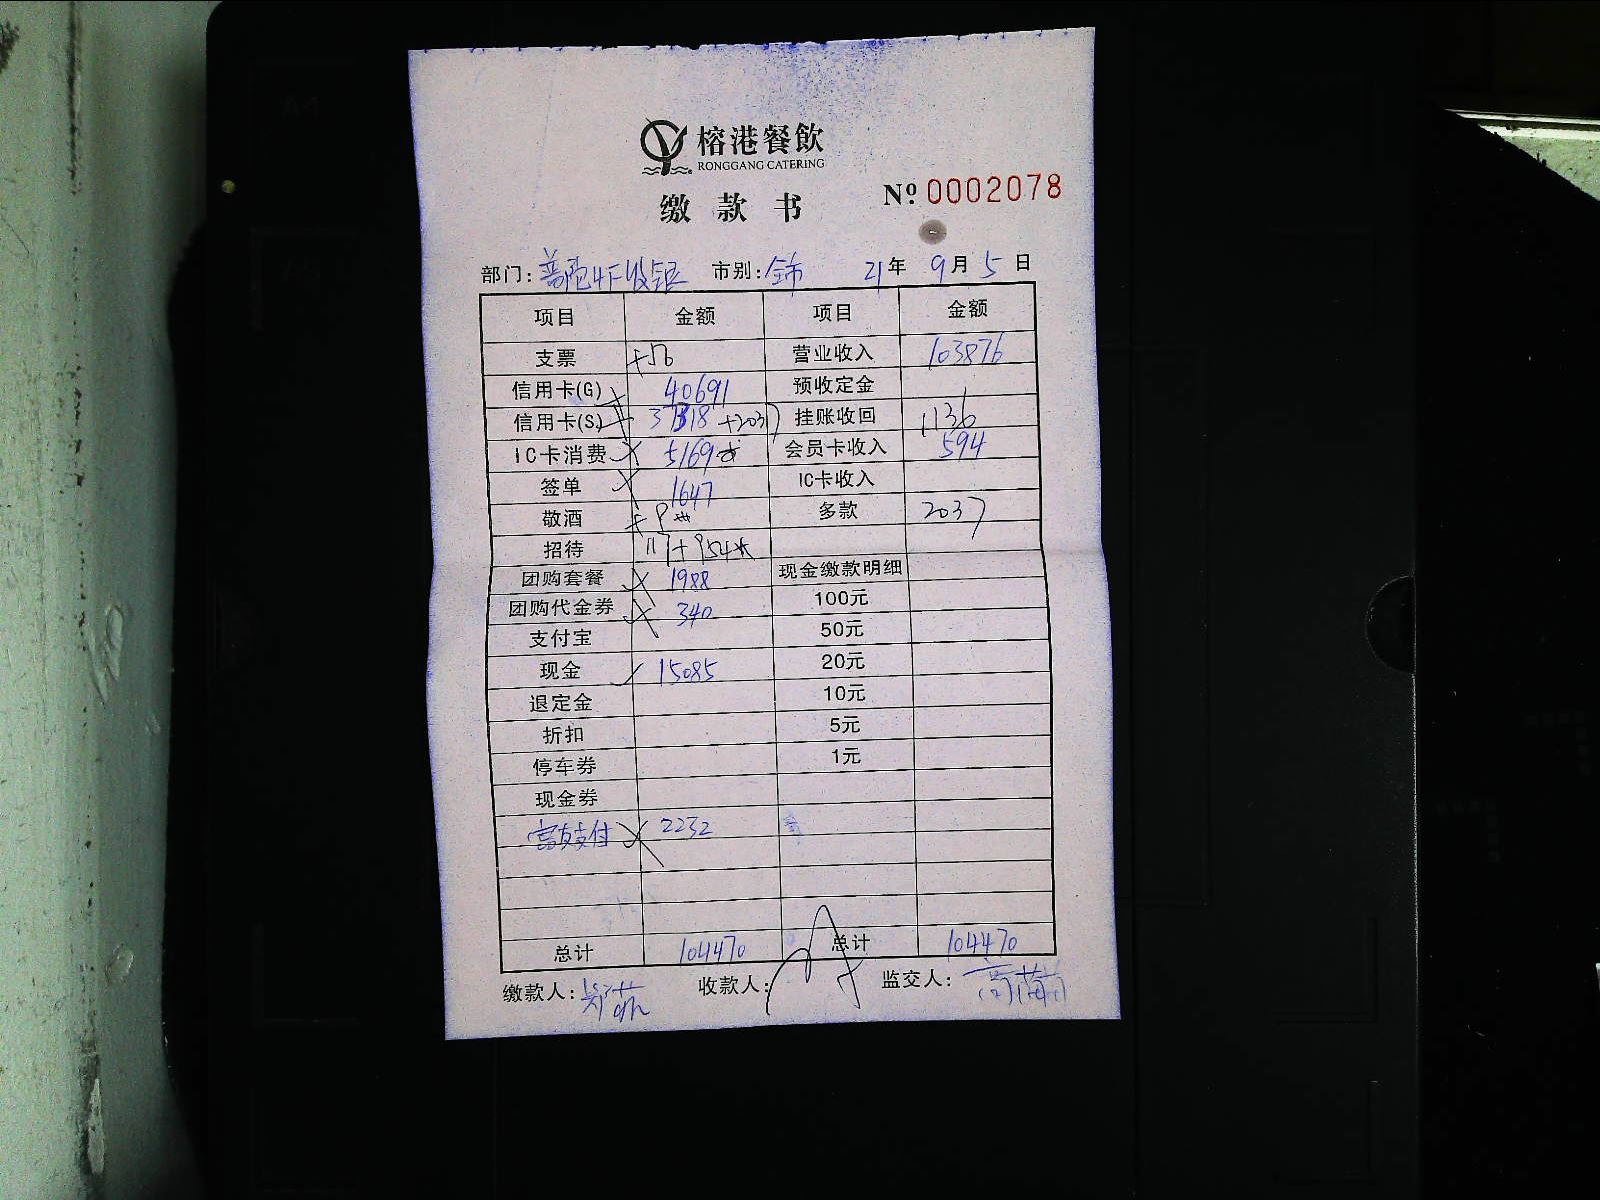 榕港餐飲
RONGGANG CATERING
缴款书
№ 0002078
部门: 普陀4F收银 市别: 全市 21年 9月 5日
项目 金额 项目 金额
支票 营业收入 103876
信用卡(G) 40691 预收定金
信用卡(S) 37318 +2037 挂账收回 1136
IC卡消费 5169 会员卡收入 594
签单 1647 IC卡收入
敬酒 多款 2037
招待 117+954
团购套餐 1988 现金缴款明细
团购代金券 340 100元
支付宝 50元
现金 15085 20元
退定金 10元
折扣 5元
停车券 1元
现金券
支付 2232
总计 104470 总计 104470
缴款人: 收款人: 监交人: